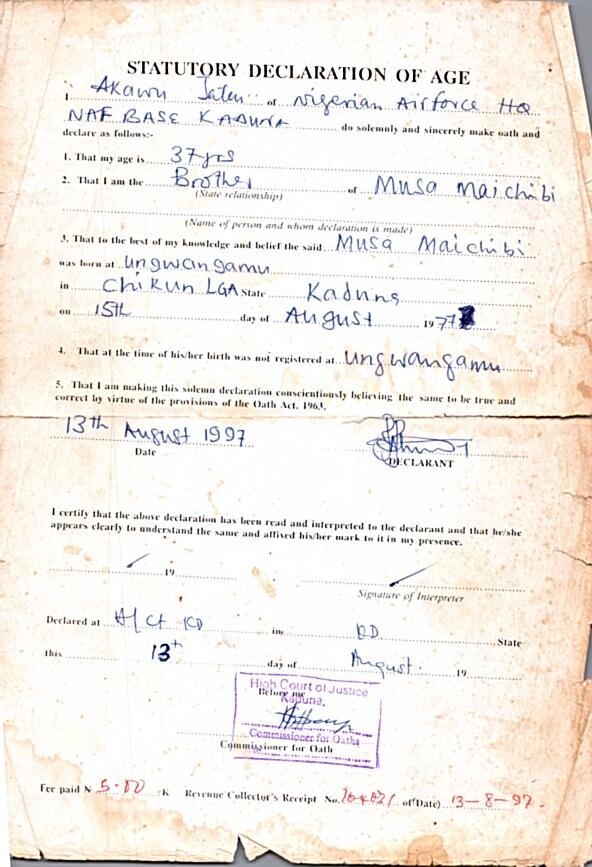 STATUTORY DECLARATION OF AGE
I Akawu Jatau of Nigerian Airforce HQ
NAF BASE KADUNA do solemnly and sincerely make oath and
declare as follows:-
1. That my age is 37yrs
2. That I am the Brother of Musa Maichibi
(State relationship)
(Name of person and whom declaration is made)
3. That to the best of my knowledge and belief the said Musa Maichibi
was born at Ungwangamu
in Chikun LGA State Kaduna
on 15th day of August 1977
4. That at the time of his/her birth was not registered at Ungwangamu
5. That I am making this solemn declaration conscientiously believing the same to be true and
correct by virtue of the provisions of the Oath Act. 1963.
13th August 1997
Date DECLARANT
I certify that the above declaration has been read and interpreted to the declarant and that he/she
appears clearly to understand the same and affixed his/her mark to it in my presence.
19
Signature of Interpreter
Declared at H/Ct KD in KD State
this 13th day of August 19
High Court of Justice
Before me
Kaduna,
Commissioner for Oaths
Commissioner for Oath
Fee paid N 5.00 K Revenue Collector's Receipt No. of Date) 13-8-97.